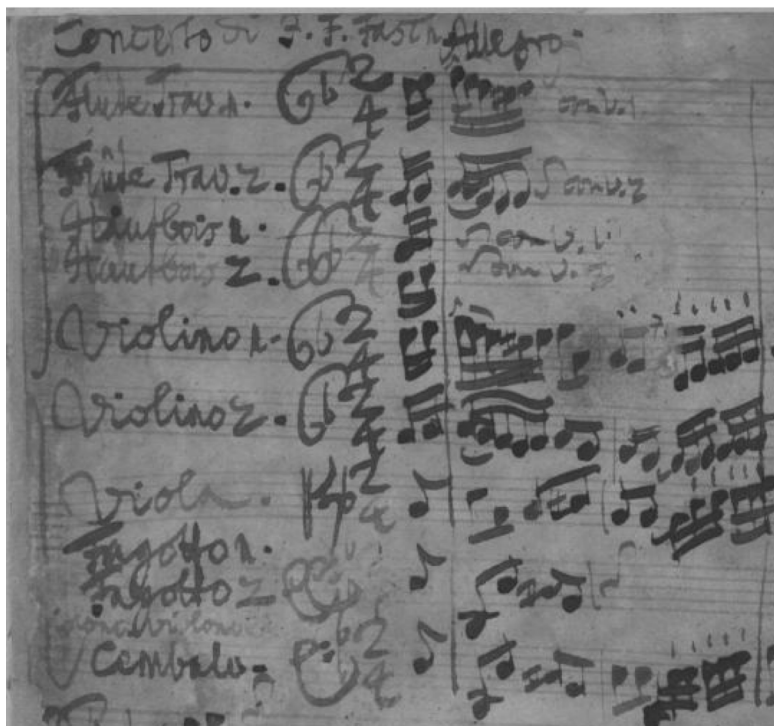 Concerto di J. F. Fasch Allegro
Flûte Trav. 1. 2 4
Flûte Trav. 2. 2 4
Hautbois 1. 2 4
Hautbois 2. 2 4
Violino 1. 2 4
Violino 2. 2 4
Viola. 2 4
Fagotto 1.
Fagotto 2
Cembalo. 2 4